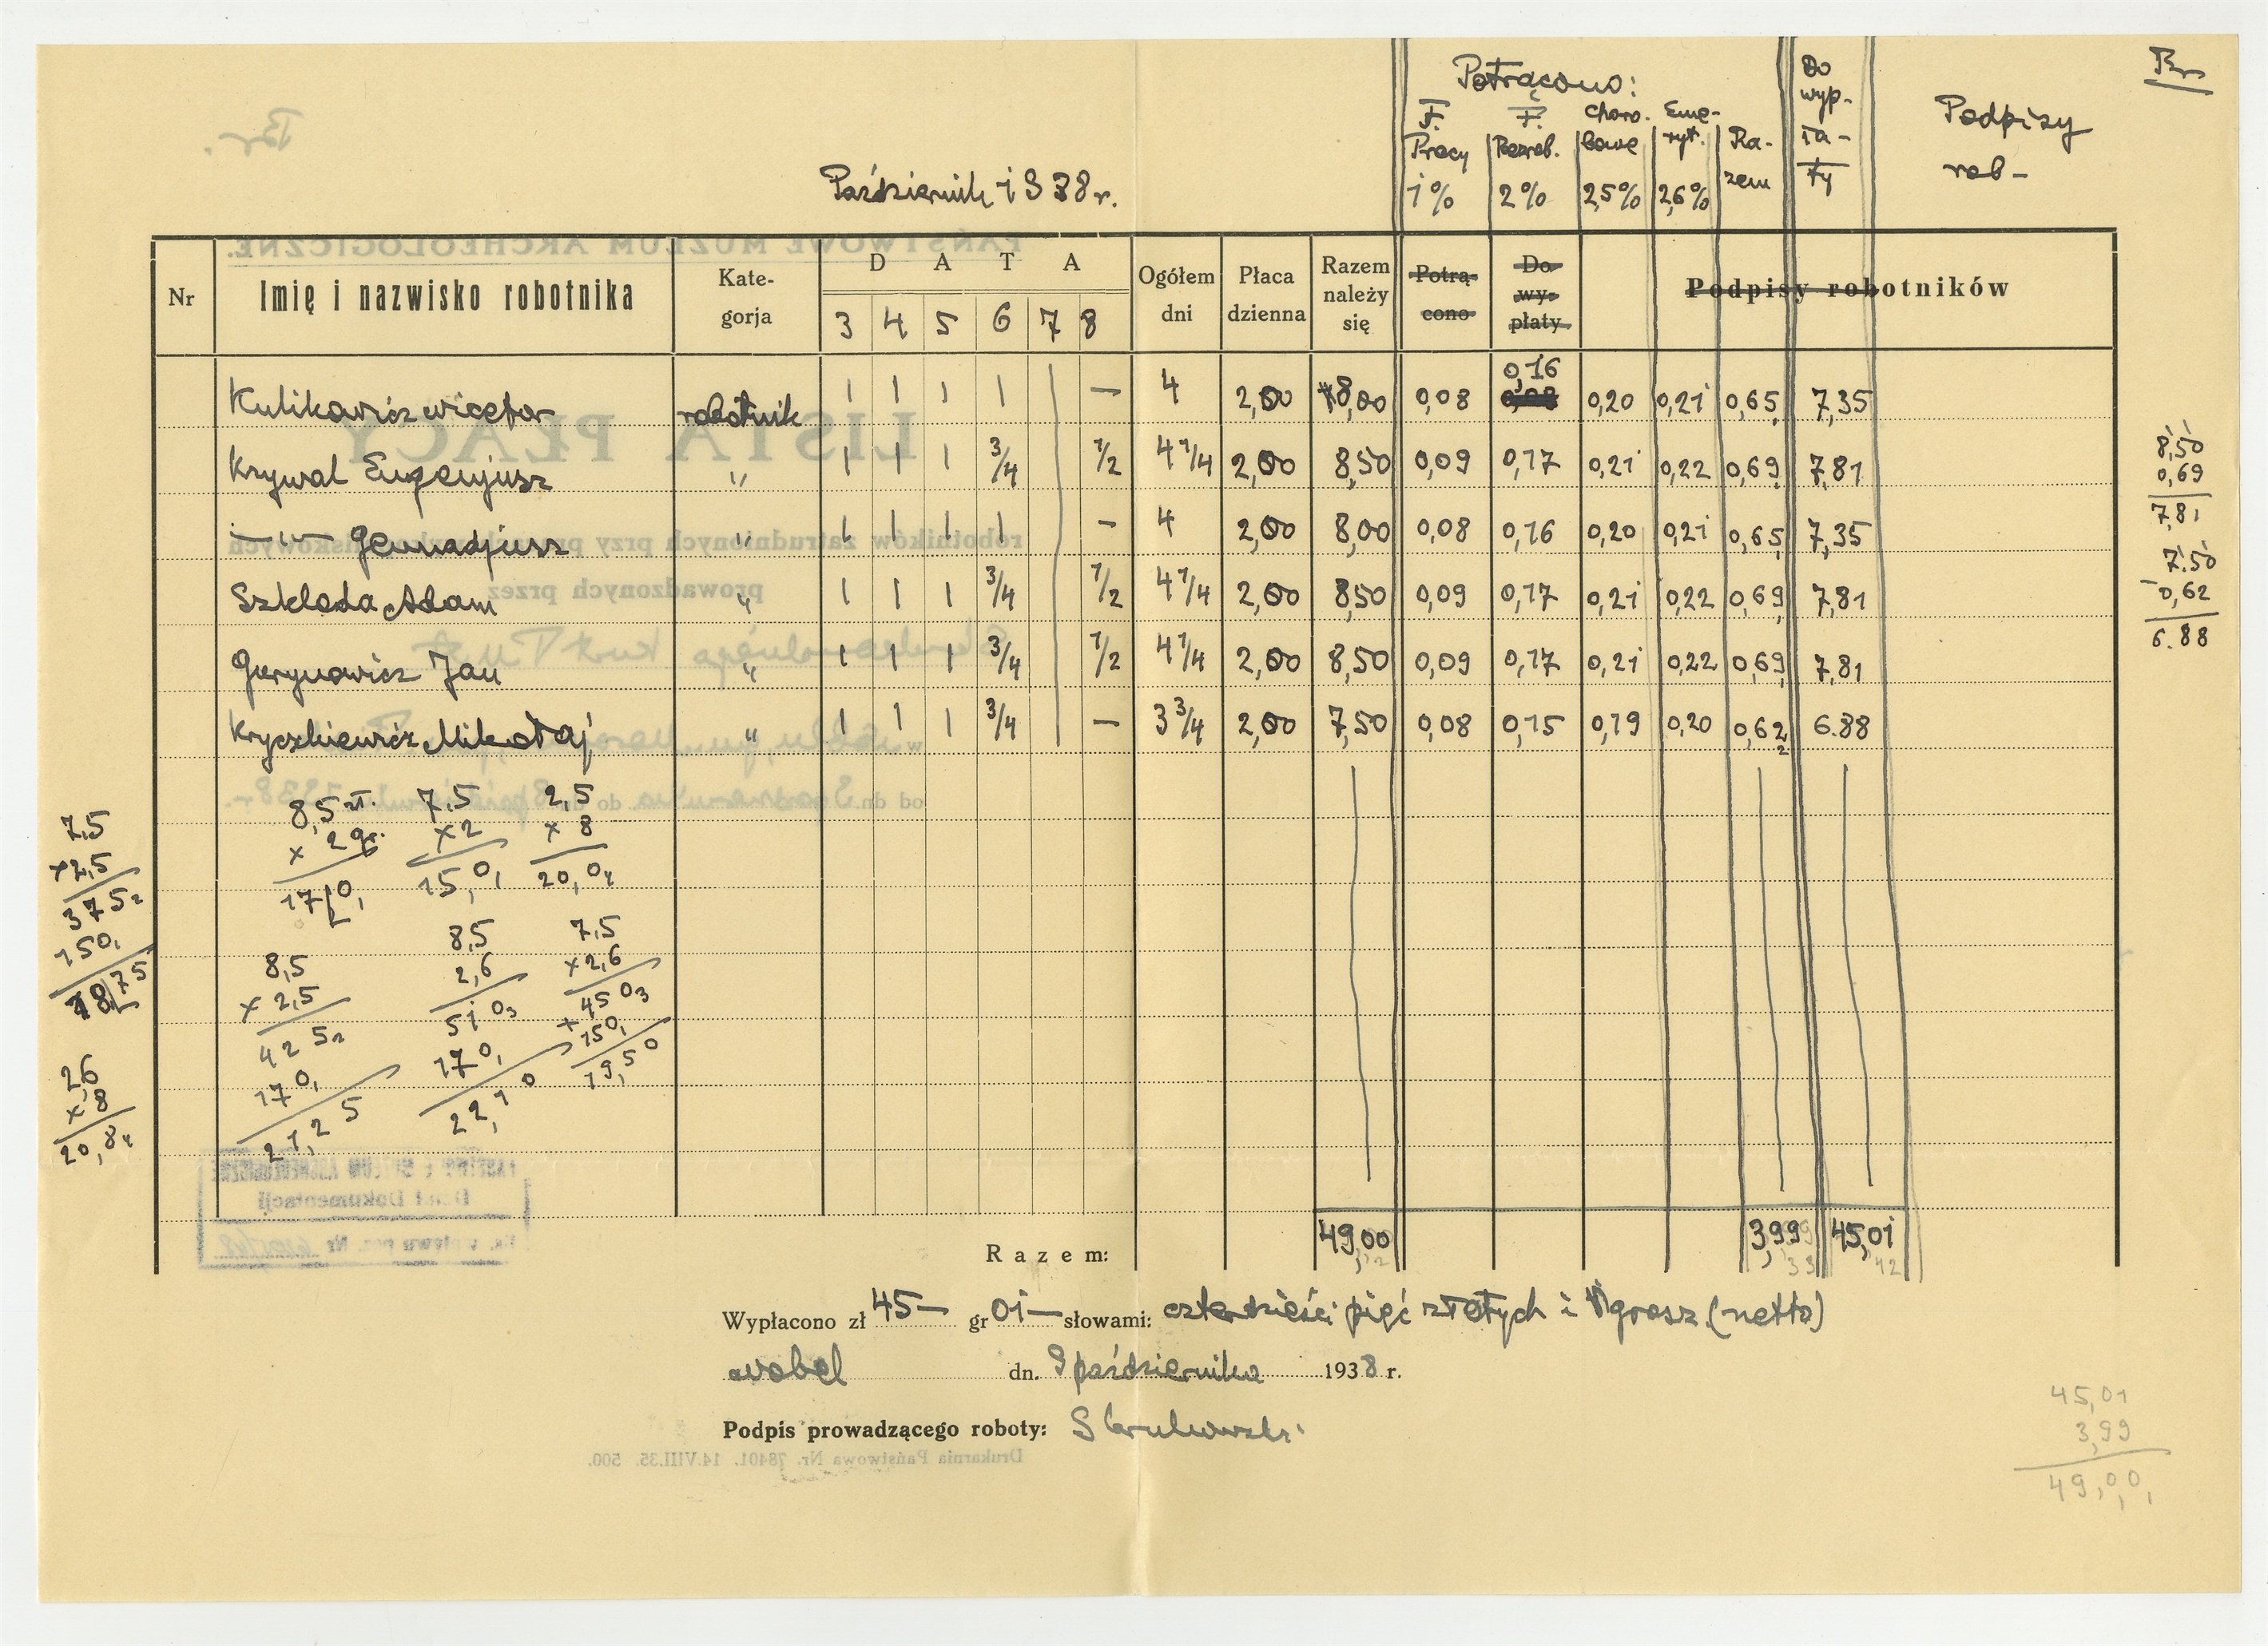 Br.
Październik 1938 r.
Potrącono:
F. Pracy 1%
F. Bezrob. 2%
Chorobowe 2,5%
Emeryt. 2,6%
Razem
Do wypłaty
Podpisy rob-
Nr
Imię i nazwisko robotnika
Kategorja
D A T A
3 4 5 6 7 8
Ogółem dni
Płaca dzienna
Razem należy się
Potrącono
Do wypłaty
Podpisy robotników
Kulikowicz Wictor robotnik 1 1 1 1 — 4 2,00 8,00 0,08 0,16 0,20 0,21 0,65 7,35
Krywal Eugenjusz " 1 1 1 3/4 1/2 4 1/4 2,00 8,50 0,09 0,17 0,21 0,22 0,69 7,81
—"— Gennadjusz " 1 1 1 1 - 4 2,00 8,00 0,08 0,16 0,20 0,21 0,65 7,35
Szkloda Adam " 1 1 1 3/4 1/2 4 1/4 2,00 8,50 0,09 0,17 0,21 0,22 0,69 7,81
Gerynowicz Jan " 1 1 1 3/4 1/2 4 1/4 2,00 8,50 0,09 0,17 0,21 0,22 0,69 7,81
Kryczkiewicz Mikołaj " 1 1 1 3/4 — 3 3/4 2,00 7,50 0,08 0,15 0,19 0,20 0,62 6.88
8,50
0,69
7,81
7.50
-0,62
6.88
7,5
x2,5
375
150
18,75
2,6
x 8
20,8
8,5 zł.
x 2 gr.
17,0
7,5
x2
15,0
2,5
x 8
20,0
8,5
x 2,5
42 5
17 0
21,25
8,5
2,6
51 0
17 0
22,10
7,5
x2,6
45 0
+ 150
19,50
Razem: 49,00 3,99 45,01
Wypłacono zł 45— gr 01— słowami: czterdzieści pięć złotych i 1 grosz (netto)
Wobel dn. 9 października 1938 r.
Podpis prowadzącego roboty:
45,01
3,99
49,00